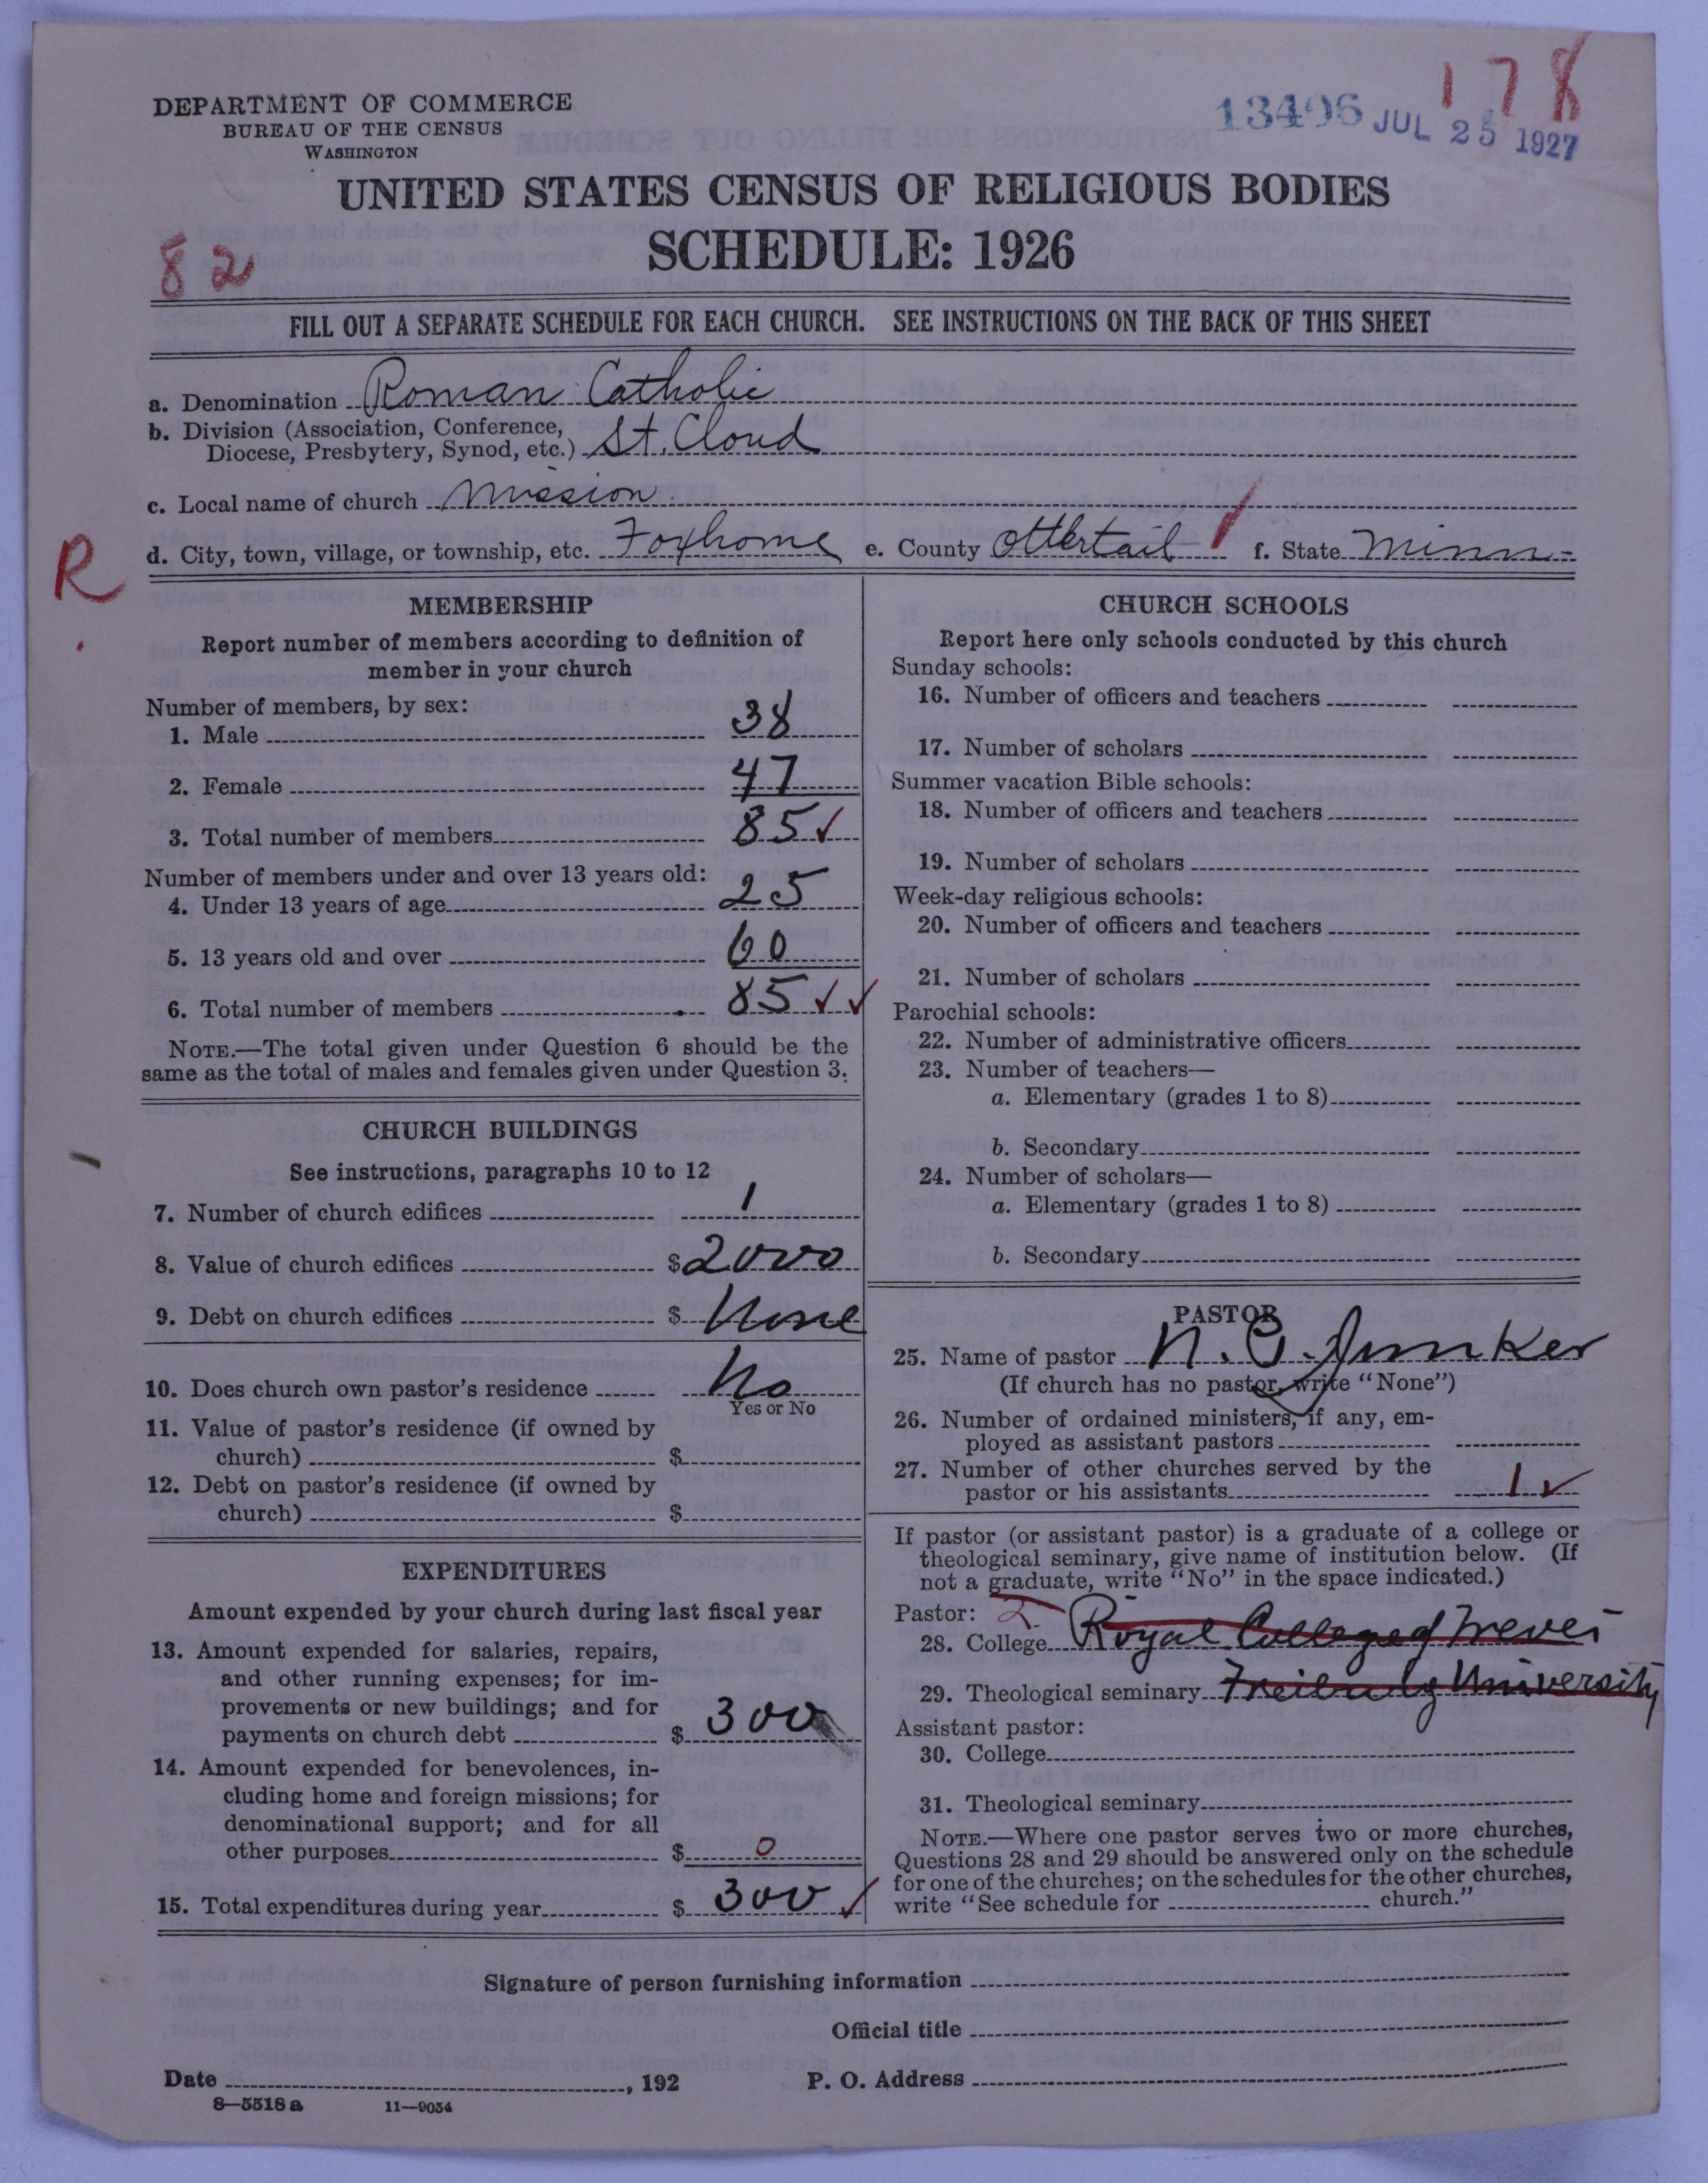 178
13406 JUL 25 1927
DEPARTMENT OF COMMERCE
BUREAU OF THE CENSUS
WASHINGTON
UNITED STATES CENSUS OF RELIGIOUS BODIES
SCHEDULE: 1926
82
FILL OUT A SEPARATE SCHEDULE FOR EACH CHURCH. SEE INSTRUCTIONS ON THE BACK OF THIS SHEET
a. Denomination Roman Catholic
b. Division (Association, Conference,
Diocese, Presbytery, Synod, etc.) St. Cloud
c. Local name of church Mission
d. City, town, village, or township, etc. Foxhome e. County Ottertail f. State Minn-
R
MEMBERSHIP
Report number of members according to definition of
member in your church
Number of members, by sex:
1. Male 38
2. Female 47
3. Total number of members 85 ✓
Number of members under and over 13 years old:
4. Under 13 years of age 25
5. 13 years old and over 60
6. Total number of members 85 ✓ ✓
NOTE.—The total given under Question 6 should be the
same as the total of males and females given under Question 3.
CHURCH BUILDINGS
See instructions, paragraphs 10 to 12
7. Number of church edifices 1
8. Value of church edifices $2000
9. Debt on church edifices $ None
10. Does church own pastor's residence No
Yes or No
11. Value of pastor's residence (if owned by
church) $
12. Debt on pastor's residence (if owned by
church) $
EXPENDITURES
Amount expended by your church during last fiscal year
13. Amount expended for salaries, repairs,
and other running expenses; for im-
provements or new buildings; and for
payments on church debt $ 300
14. Amount expended for benevolences, in-
cluding home and foreign missions; for
denominational support; and for all
other purposes $ 0
15. Total expenditures during year $ 300 ✓
CHURCH SCHOOLS
Report here only schools conducted by this church
Sunday schools:
16. Number of officers and teachers
17. Number of scholars
Summer vacation Bible schools:
18. Number of officers and teachers
19. Number of scholars
Week-day religious schools:
20. Number of officers and teachers
21. Number of scholars
Parochial schools:
22. Number of administrative officers
23. Number of teachers—
a. Elementary (grades 1 to 8)
b. Secondary
24. Number of scholars—
a. Elementary (grades 1 to 8)
b. Secondary
PASTOR
25. Name of pastor N. O. Junker
(If church has no pastor, write "None")
26. Number of ordained ministers, if any, em-
ployed as assistant pastors
27. Number of other churches served by the
pastor or his assistants 1 ✓
If pastor (or assistant pastor) is a graduate of a college or
theological seminary, give name of institution below. (If
not a graduate, write "No" in the space indicated.)
Pastor: 2
28. College Royal College of Treves
29. Theological seminary Freiburg University
Assistant pastor:
30. College
31. Theological seminary
NOTE.—Where one pastor serves two or more churches,
Questions 28 and 29 should be answered only on the schedule
for one of the churches; on the schedules for the other churches,
write "See schedule for church."
Signature of person furnishing information
Official title
Date , 192 P. O. Address
8—5518 a 11—9054